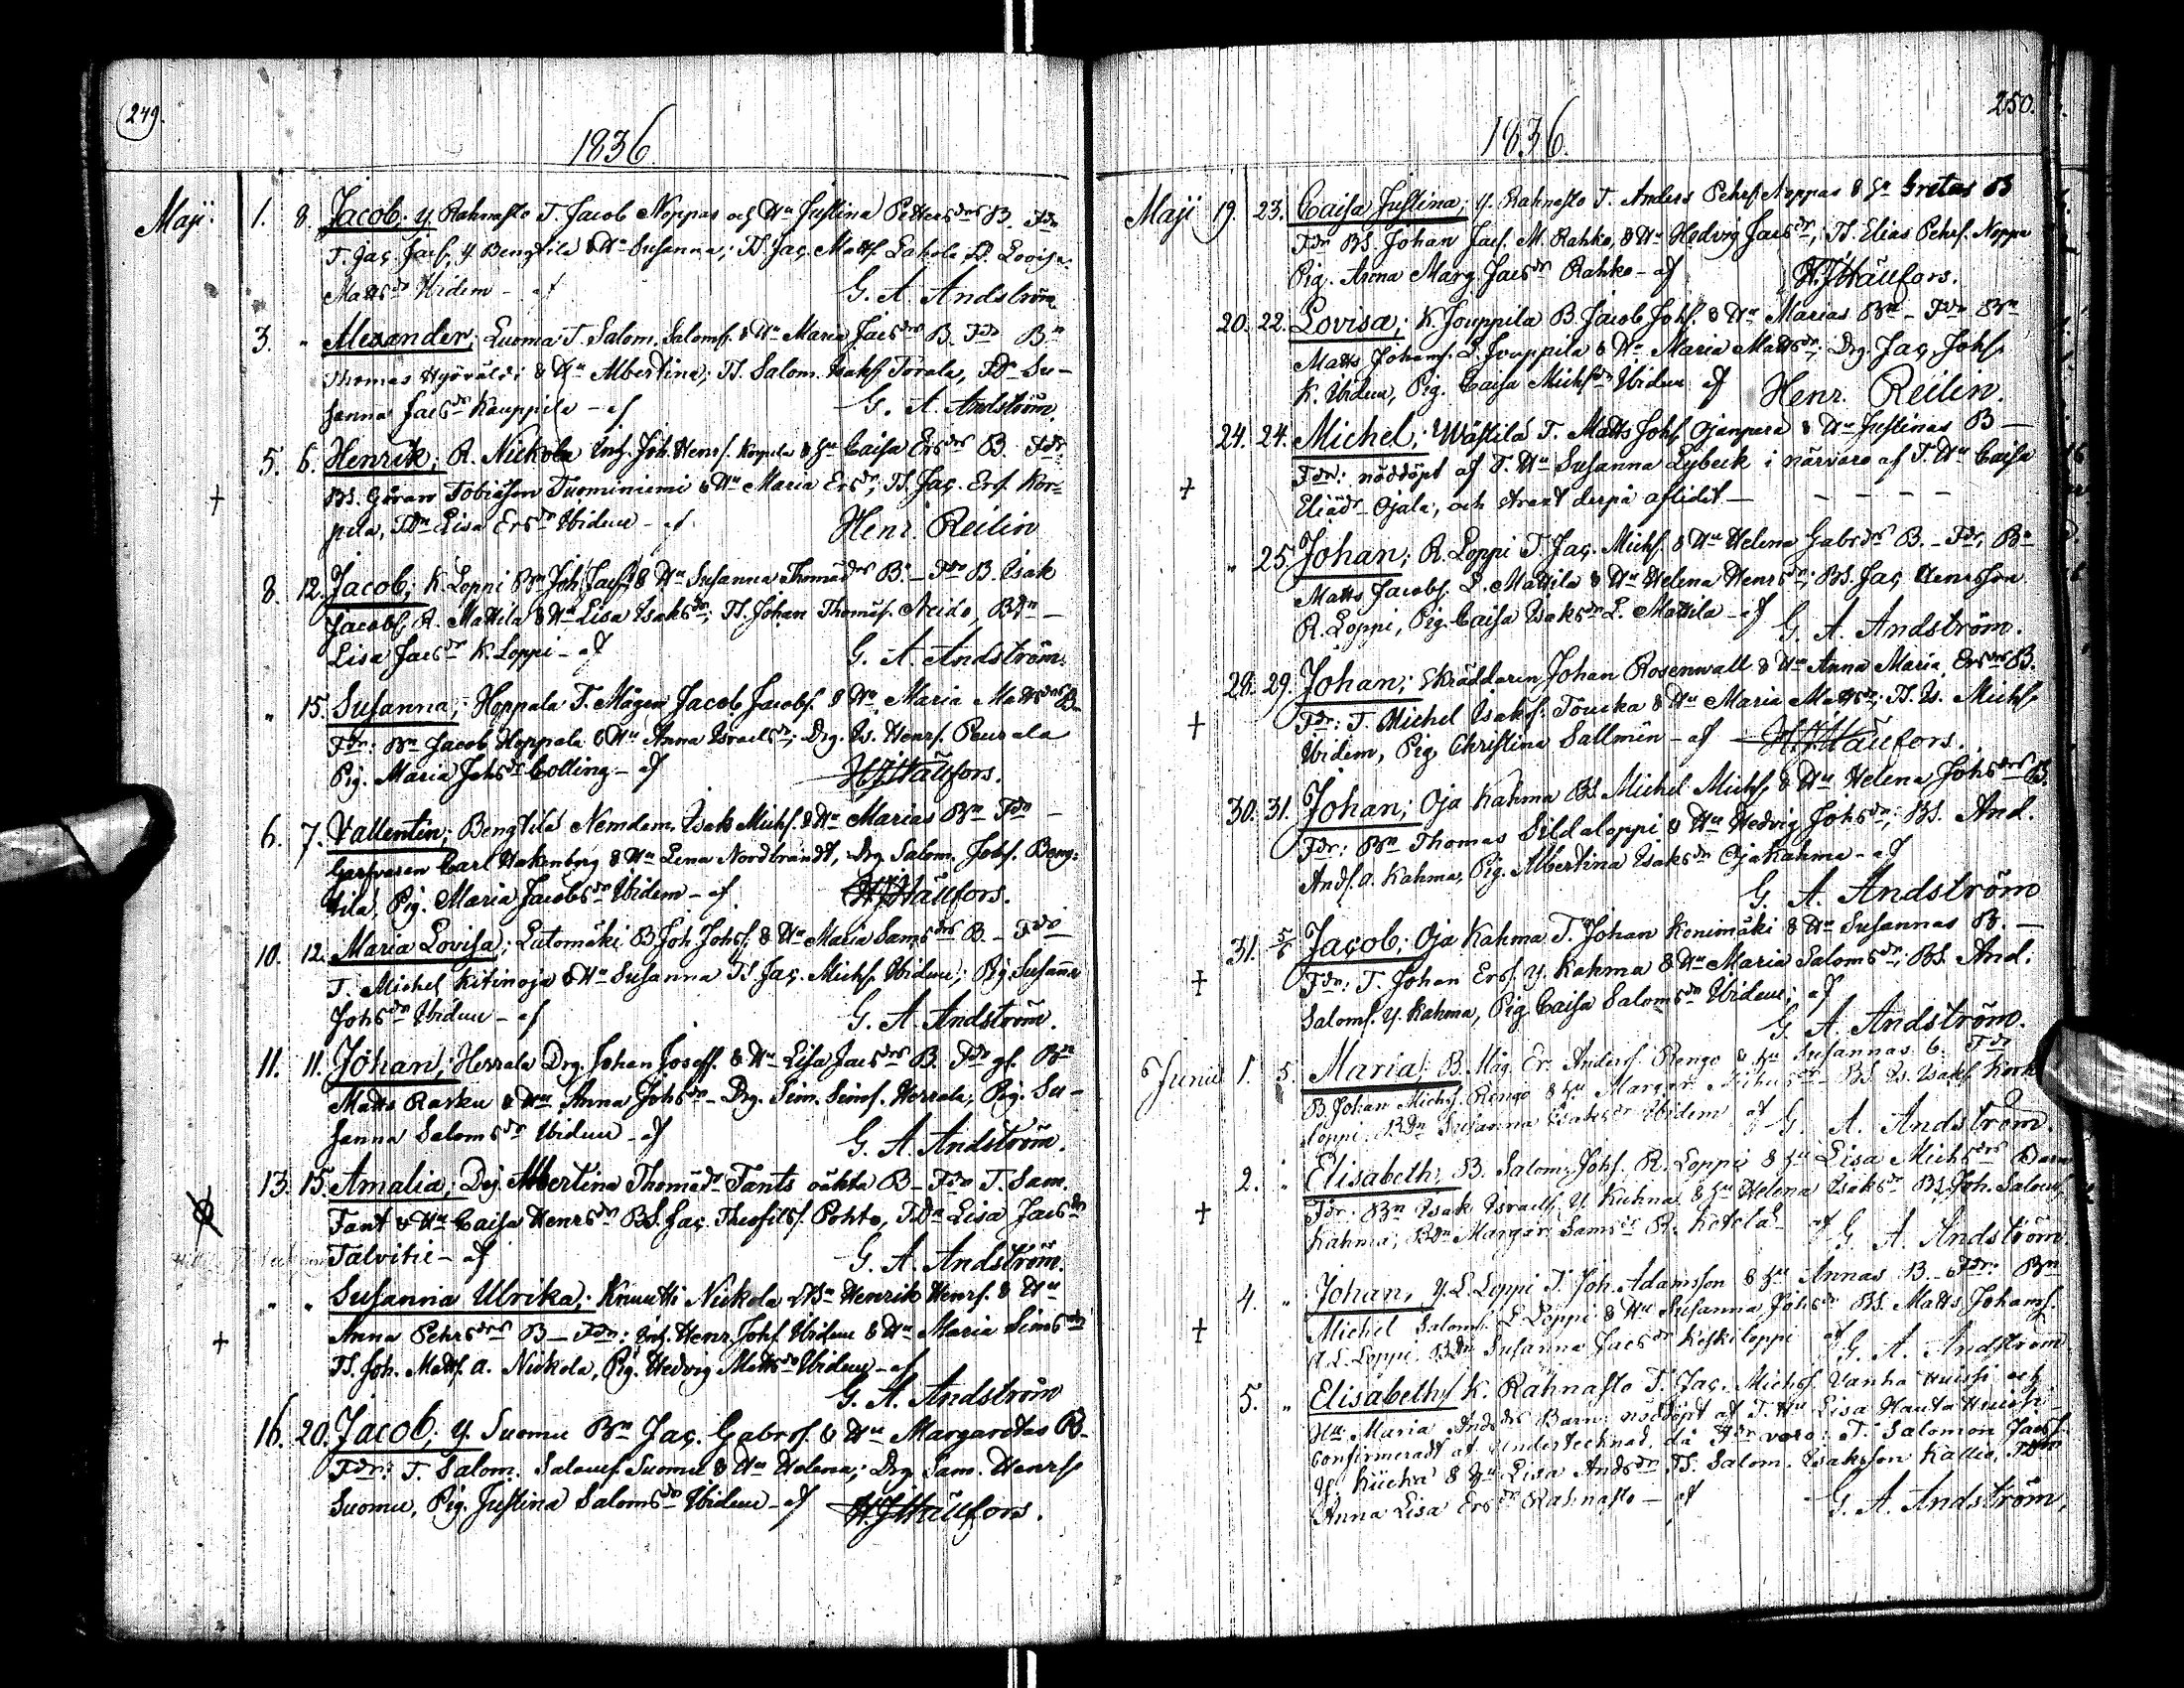 249.
1836
Maji 1. 8. Jacob; Y. Rahnasto T. Jacob Noppas och Hu Justina Pettersdrs B. Fdr
T. Jac. Jacs. Y. Bengtila & Hu Susanna; TS. Jac. Matts. Lahola TD. Lovisa
Mattsdr Ibidem - af G. A. Andström
3. " Alexander; Luoma T. Salom. Saloms. & Hu Maria Jacsdrs B. Fdr Bn
Thomas Hyöräldi & Hu Albertina; TS. Salom. Isaks. Torala, TDr Su-
sanna Jacsdr Kauppila - af G. A. Andström.
5. 6. Henrik; R. Nickola Inh. Joh. Henrs. Korpela & Hu Caisa Ersdrs B. Fdr:
BS. Göran Tobiäson Tuominiemi & Hu Maria Ersdr; TS. Jac. Ers. Kor-
pela, TDr Lisa Ersdr Ibidem - af Henr. Reilin
8. 12. Jacob; K. Loppi Bn Joh. Jacs. & Hu Susanna Thomädrs B. - Fdr B. Isak
Jacobs. R. Mattila & Hu Lisa Isaksdr; TS. Johan Thomäs. Neido, BDr -
Lisa Jacsdr K. Loppi - af G. A. Andström.
" 15. Susanna; Hoppala T. Mågen Jacob Jacobs. & Hu Maria Mattsdrs B.
Fdr: Bn Jacob Hoppala & Hu Anna Israelsdr; Drg. Is. Henrs. Peurala
Pig. Maria Johsdr Colling - af HJHällfors.
6. 7. Vallentin; Bengtilä Nemdem. Isak Michs. & Hu Marias Bn Fdr -
Garfvaren Carl Hakenberg & Hu Lena Nordbrandt, Drg Salom. Johs. Beng-
tila, Pig. Maria Jacobsdr Ibidem - af HJHällfors.
10. 12. Maria Lovisa; Lutomäki B. Joh Johs. & Hu Maria Samsdrs B. - Fdr
T. Michel Kitinoja & Hu Susanna TS. Jac. Michs. Ibidem; Pig. Susanna
Johsdr Ibidem - af G. A. Andström.
11. 11. Johan; Herrala Drg. Johan Joseffs. & Hu Lisa Jacsdrs B. Fdr gf. Bn
Matts Rasku & Hu Anna Johsdr - Drg. Sim. Sims. Herrala, Pig. Su-
sanna Salomsdr Ibidem - af G. A. Andström.
13. 15. Amalia; Dej. Albertina Thomädr Fants oächta B - Fdr T. Sam.
Fant & Hu Caisa Henrsdr BS. Jac. Theofils. Pohto, TDr Lisa Jacsdr
Talvitie - af G. A. Andström.
" " Susanna Ulrika; Knuutti Nickola Bn Henrik Henrs. & Hu
Anna Pehrsdrs B - Fdr: Inh. Henr. Johs. Ibidem & Hu Maria Simsdr
TS. Joh. Matts. a. Nickola, Pig. Hedvig Mattsdr Ibidem - af
G. A. Andström
16. 20. Jacob; Y. Suomu Bn Jac. Gabrs. & Hu Margaretas B.
Fdr: T. Salom. Saloms. Suomu & Hu Helena; Drg Sam. Henrs.
Suomu, Pig. Justina Salomsdr Ibidem - af HJHällfors.
250.
1836.
Maji 19. 23. Caisa Justina; Y. Rahnasto T. Anders Pehrs. Noppas & Hu Gretas B
Fdr BS. Johan Jacs. M. Rahko, & Hu Hedvig Jacsdr; TS. Elias Pehrs. Noppa
Pig. Anna Marg. Jacsdr Rahko - af HJHällfors.
20. 22. Lovisa; K. Jouppila B. Jacob Johs. & Hu Marias Bn - Fdr Bn
Matts Johans. L. Jouppila & Hu Maria Mattsdr; Drg. Jac. Johs.
K. Ibidem, Pig. Caisa Michsdr Ibidem af Henr. Reilin.
24. 24. Michel; Wästilä T. Matts Johs. Ojanpera & Hu Justinas B -
Fdr: nöddöpt af T. Hu Susanna Lybeck i närvaro af T. Hu Caisa
Eliädr Ojala, och strax derpå aflidit -
" 25. Johan; R. Loppi T. Jac. Michs. & Hu Helena Gabrdrs B. - Fdr; Bn
Matts Jacobs. L. Mattila & Hu Helena Henrsdr; BS. Jac. Henrsson
R. Loppi, Pig. Caisa Isaksdr L. Mattila - af G. A. Andström.
28. 29. Johan; Skräddaren Johan Rosenwall & Hu Anna Maria Ersdrs B.
Fdr: T. Michel Isaks. Touska & Hu Maria Mattsdr; TS. Is. Michs.
Ibidem, Pig. Christina Sallmén - af HJHällfors.
30. 31. Johan; Oja Kahma BS. Michel Michs. & Hu Helena Johsdrs B.
Fdr: Bn Thomas Sildaloppi & Hu Hedvig Johsdr; BS. And.
Ands. a. Kahma, Pig. Albertina Isaksdr Oja Kahma - af
G. A. Andström
31. 5/6 Jacob; Oja Kahma T. Johan Konimäki & Hu Susannas B. -
Fdr: T. Johan Ers. Y. Kahma & Hu Maria Salomsdr; BS. And.
Saloms. Y. Kahma, Pig. Caisa Salomsdr Ibidem; af
G. A. Andström.
Junii 1. 5. Maria; B. Mag. Er. Anders. Rengo & Hu Susannas B. Fdr
B. Johan Michs. Rengo & Hu Margar. BS. Is. Isaks.
loppi. BDr Susanna Isaksdr Ibidem af G. A. Andström.
2. " Elisabeth; B. Salom. Johs. R. Loppis & Hu Lisa Michsdrs Barn
Fdr: Bn Isak Israels. Y. Kuhna & Hu Helena Isaksdr BS. Joh. Saloms.
Kahma; BDr Margar. Samsdr R. Kotola af G. A. Andström.
4. " Johan, Y. L. Loppi T. Joh. Adamsson & Hu Annas B. - Fdr: Bn
Michel Saloms. L. Loppi & Hu Susanna Johsdr BS. Matts Johans.
A. L. Loppi. BDr Susanna Jacsdr Keskiloppi af G. A. Andström
5. " Elisabeth; K. Rahnasto T. Jac. Michs. Vanha Huissi och
Hu Maria Andsdrs Barn; nöddöpt af T. Hu Lisa Hauta Huissi
Confirmeradt af Undertecknad, då Fdr voro: T. Salomon Jacs.
Y. & Hu Lisa Andsdr TS. Salom. Isaksson Kallio, TDr
Anna Lisa Ersdr Rahnasto - af G. A. Andström.